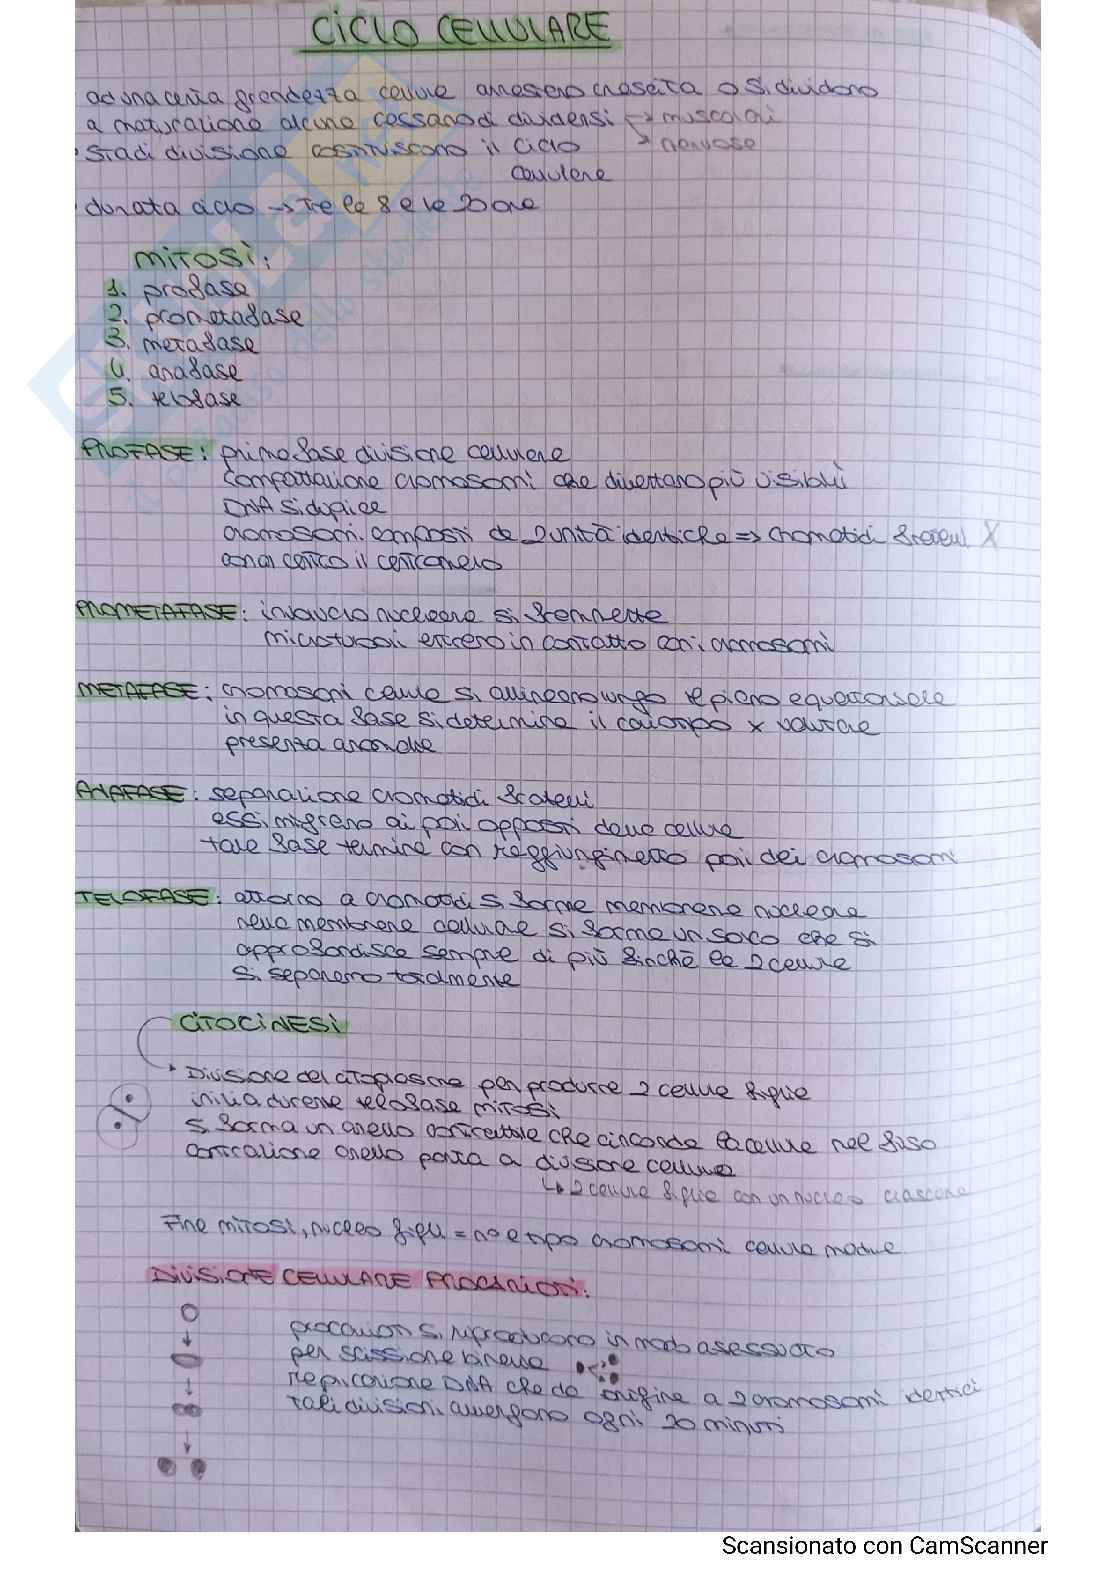 CICLO CELLULARE
ad una certa grandezza cellule arrestano crescita o si dividono
a maturazione alcune cessano di dividersi → muscolari
→ nervose
stadi divisione costituiscono il ciclo
cellulare
durata ciclo → tra le 8 e le 20 ore
MITOSI:
1. profase
2. prometafase
3. metafase
4. anafase
5. telofase
PROFASE: prima fase divisione cellulare
compattazione cromosomi che diventano più visibili
DNA si duplica
cromosomi composti da 2 unità identiche => cromatidi fratelli X
il centromero
PROMETAFASE: involucro nucleare si frammenta
microtubuli entrano in contatto con i cromosomi
METAFASE: cromosomi cellule si allineano lungo il piano equatoriale
in questa fase si determina il cariotipo x valutare
presenza anomalie
ANAFASE: separazione cromatidi fratelli
essi migrano ai poli opposti della cellula
tale fase termina con raggiungimento poli dei cromosomi
TELOFASE: attorno a cromatidi si forma membrana nucleare
nella membrana cellulare si forma un solco che si
approfondisce sempre di più finchè le 2 cellule
si separano totalmente
CITOCINESI
Divisione del citoplasma per produrre 2 cellule figlie
inizia durante telofase mitosi
si forma un anello contrattile che circonda la cellula nel fuso
contrazione anello porta a divisione cellulare
↳ 2 cellule figlie con un nucleo ciascuna
Fine mitosi, nucleo figli = n° e tipo cromosomi cellula madre
DIVISIONE CELLULARE PROCARIOTI:
procarioti si riproducono in modo asessuato
per scissione binaria
replicazione DNA che da origine a 2 cromosomi identici
tali divisioni avvengono ogni 20 minuti
Scansionato con CamScanner